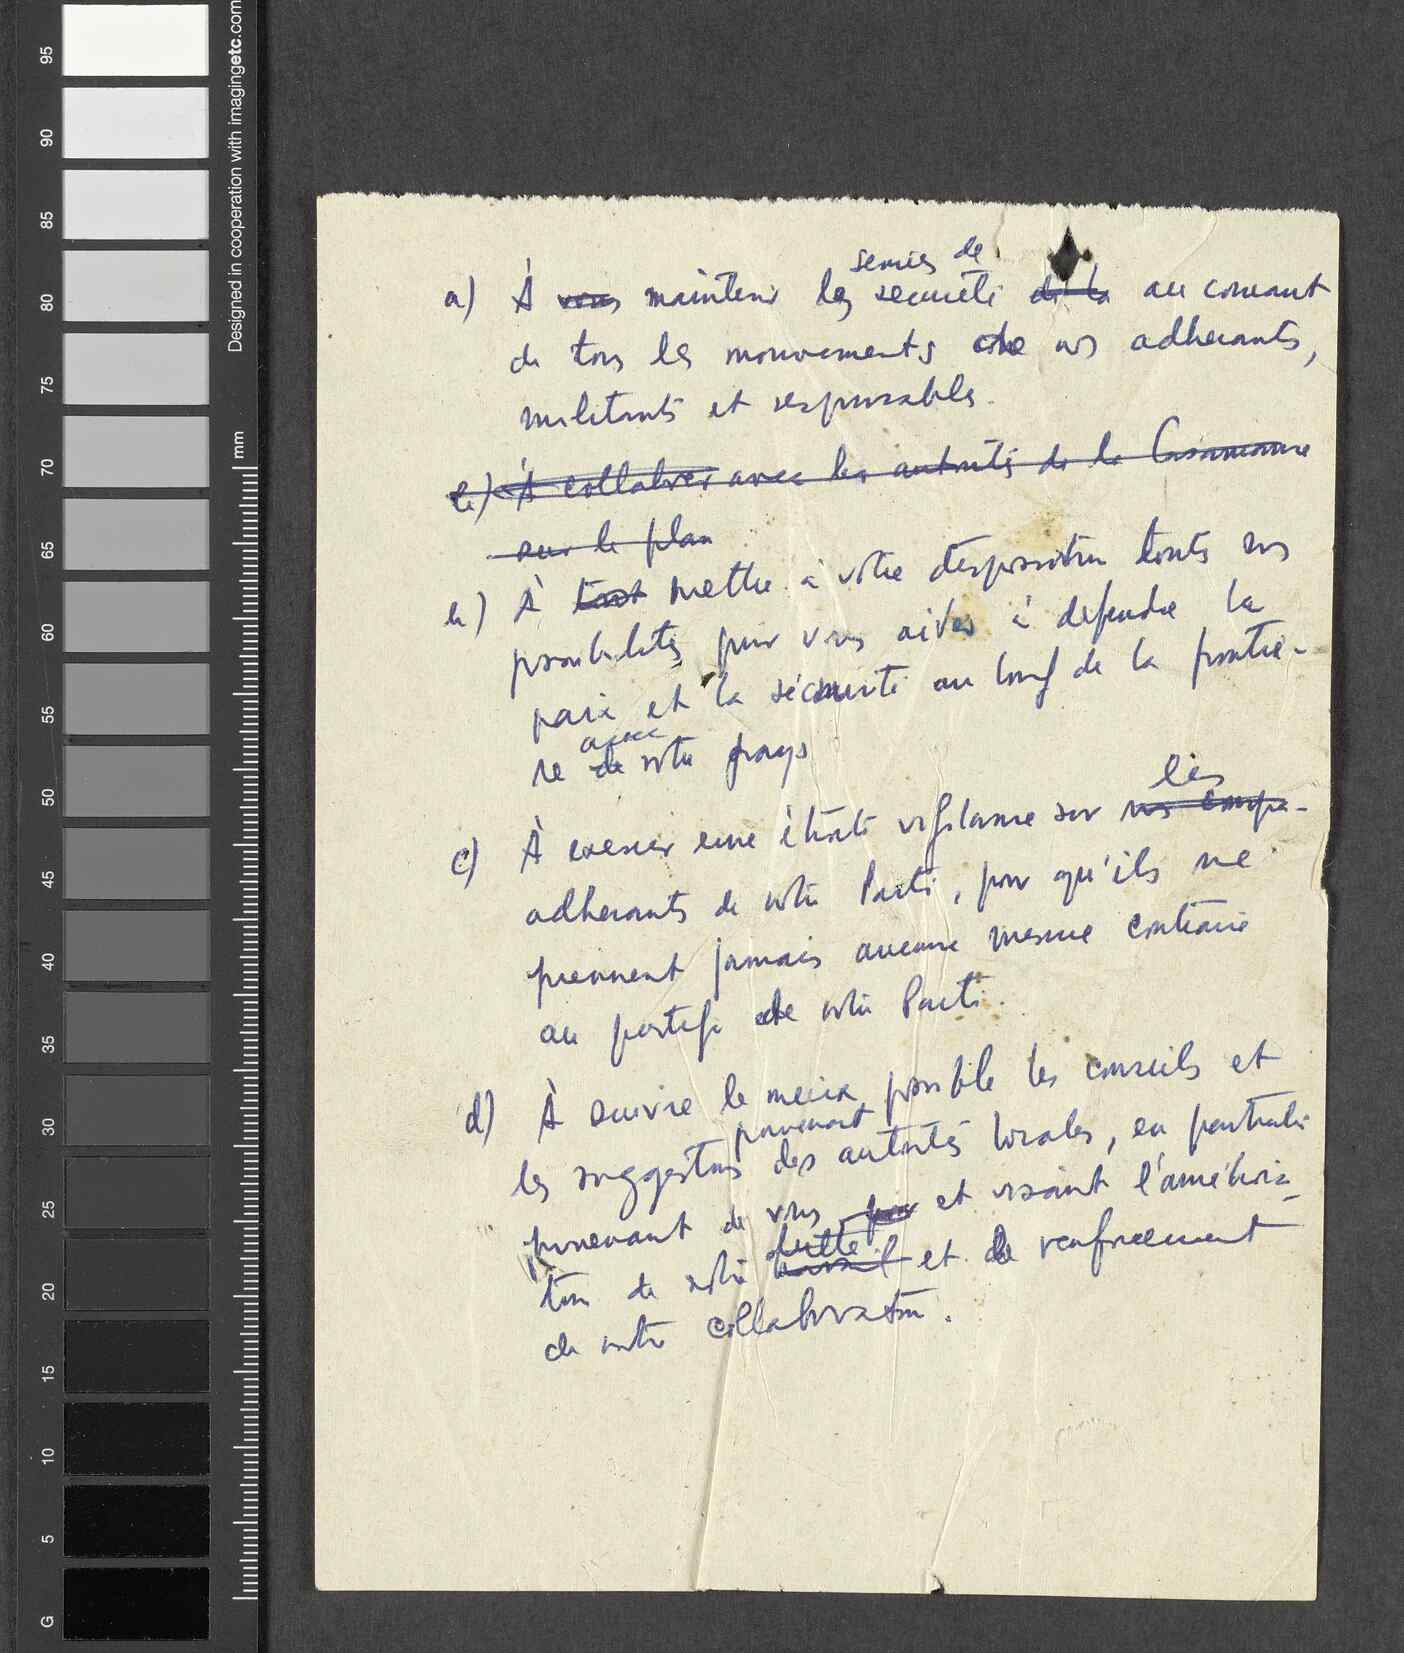 95
90
85
80
75
70
65
60
55
50
45
40
35
30
25
20
15
10
5
G
Designed in cooperation with imagingetc.com
mm
services de
a) À vous maintenir les securité de la au courant
de tous les mouvements de nos adherants,
militants et responsables.
b) À collaborer avec les autorités de la Casamance
sur le plan
b) À tout mettre à votre disposition touts nos
possibilités pour vous aider à defendre la
paix et la sécurité au long de la frontiè-
avec
re de notre pays
les
c) À exercer une étroite vigilance sur nos compa-
adherants de notre Parti, pour qu'ils ne
prennent jamais aucune mesure contraire
au de notre Parti.
d) À suivre le meiux possible les conseils et
provenant
les suggestions des autorités locales, en particulié
provenant de vous, par et visant l'améliora-
lutte
tion de notre travail et de renforcement
de notre collaboration.